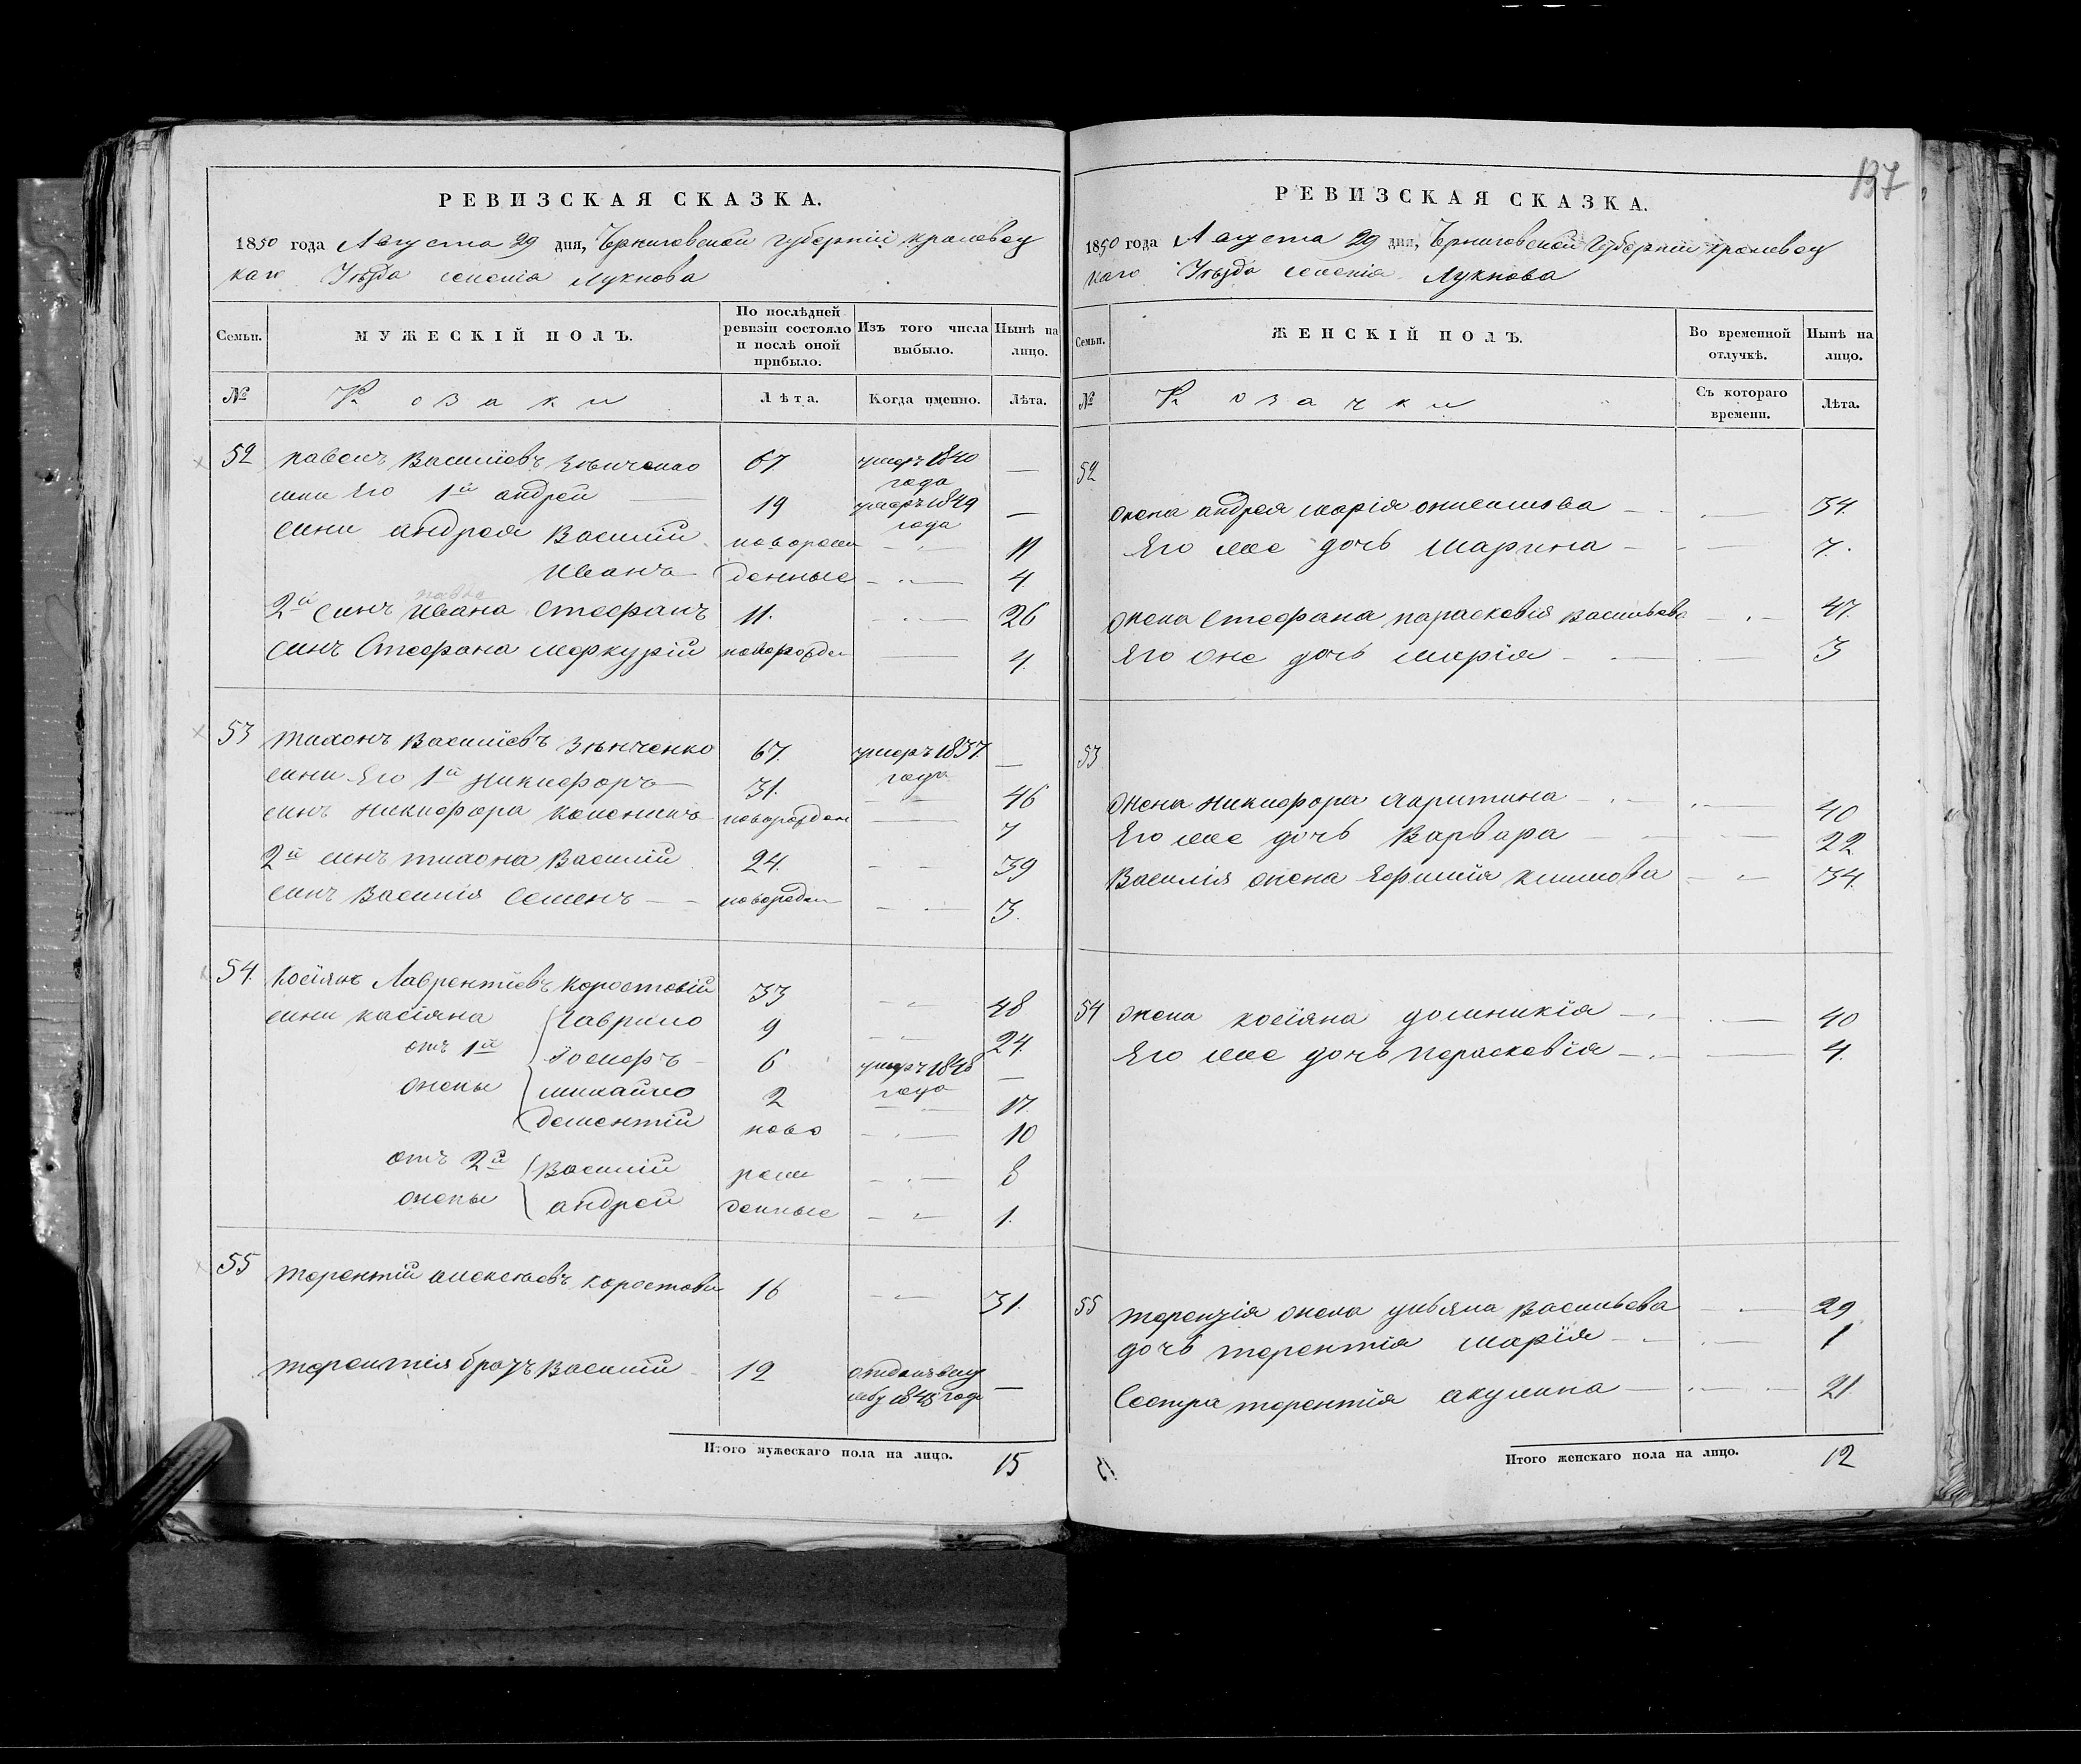 РЕВИЗСКАЯ СКАЗКА.
1850 года Августа 29 дня, Черниговской губерніи Кролевец
каго Уѣзда селенія Лукнова
Семьи.
МУЖЕСКІЙ ПОЛЪ.
По послѣдней ревизіи состояло и послѣ оной прибыло.
Изъ того числа выбыло.
Нынѣ на лицо.
№
Козаки
Лѣта.
Когда именно.
Лѣта.
52 павелъ Василіевъ 67 умеръ 1840 года —
сини Его 1й андрей 19 умеръ 1849 года —
сини андрея Василий новорож 11
Иванъ денные 4
2й синъ Ивана Стефанъ 11. 26
павла
синъ Стефана меркурій новорожден 4.
53 тихонъ Василіевъ Зѣнченко 67. умеръ 1837. года —
сини Его 1й Никифоръ 31. 46
синъ Никифора новорожден 7
2й синъ тихона Василій 24. 39
синъ Василія Семенъ новорожден 3.
54. Косіянъ Лаврентіевъ Коростовій 33 48
сини касіяна Гаврило 9 24.
отъ 1й Іосифъ 6 умеръ 1848 года —
жены михайло 2 17.
дементій ново 10
отъ 2й Василій рож 8
жены андрей денные 1.
55 терентій алексѣевъ Коростови 16 31.
терентія братъ Василій 12 —
Итого мужескаго пола на лицо. 15
137
РЕВИЗСКАЯ СКАЗКА.
1850 года Августа 29 дня, Черниговской Губерніи Кролевец
каго Уѣзда селенія Лукнова
Семьи.
ЖЕНСКІЙ ПОЛЪ.
Во временной отлучкѣ.
Нынѣ на лицо.
№
Козачки
Съ котораго времени.
Лѣта.
52
жена андрея марія 34.
Его же дочь Марина 7.
жена Стефана параскевія Васильева 47.
Его же дочь марія 3
53
жена Никифора 40
Его же дочь Варвара 22
Василія жена Ефимія климова 34.
54 жена косіяна домникія 40
Его же дочь параскевія 4.
55 жена ульяна Васильева 29
дочь терентія марія 1
Сестра терентія акулина 21
Итого женскаго пола на лицо. 12